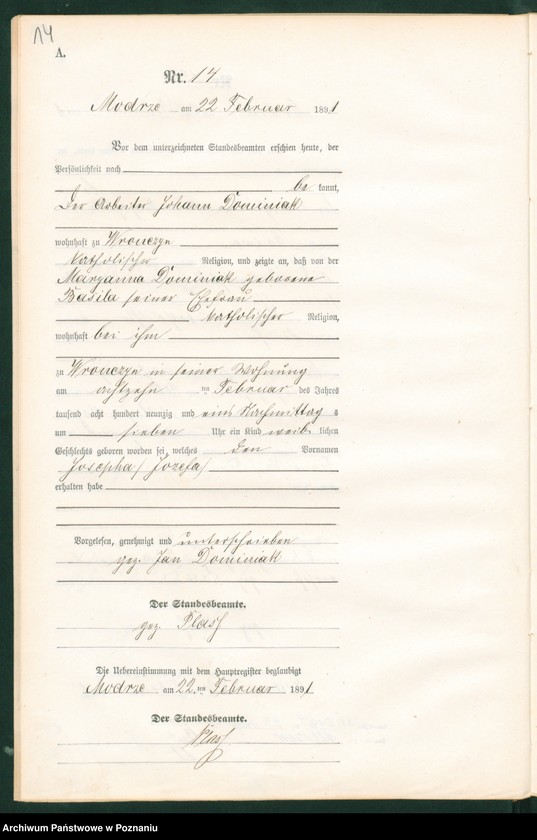 14
A.
Nr. 14
Modrze am 22 Februar 1891
Vor dem unterzeichneten Standesbeamten erschien heute, der
Persönlichkeit nach
be kannt,
der Arbeiter Johann Dominiak
wohnhaft zu Wronczyn
katholischer Religion, und zeigte an, daß von der
Maryanna Dominiak geborene
Basila seiner Ehefrau
katholischer Religion,
wohnhaft bei ihm
zu Wronczyn in seiner Wohnung
am achtzehn ten Februar des Jahres
tausend acht hundert neunzig und ein Nachmittag s
um sieben Uhr ein Kind weib lichen
Geschlechts geboren worden sei, welches den Vornamen
Josepha (Jozefa)
erhalten habe
Vorgelesen, genehmigt und unterschrieben
gez. Jan Dominiak
Der Standesbeamte.
gez.
Die Uebereinstimmung mit dem Hauptregister beglaubigt
Modrze am 22. ten Februar 1891
Der Standesbeamte.
Archiwum Państwowe w Poznaniu